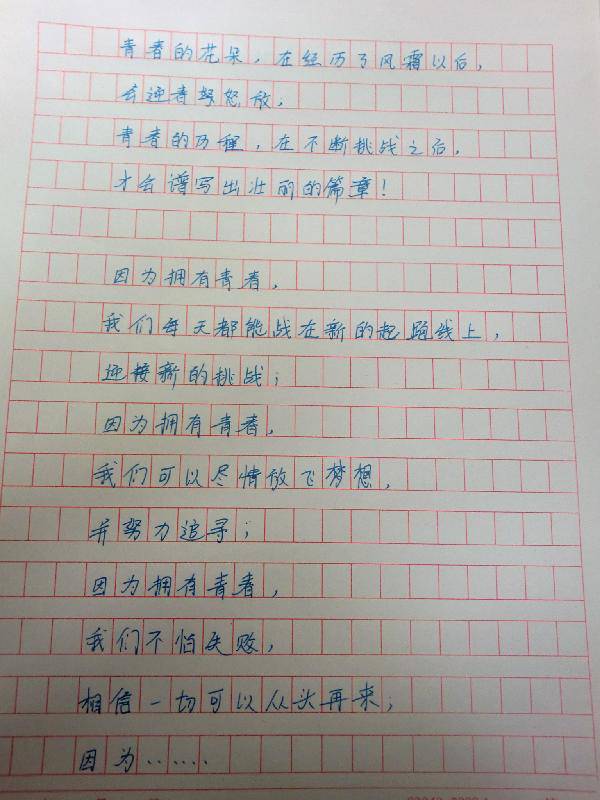 青春的花朵，在经历了风霜以后，
会迎着努怒放，
青春的历程，在不断挑战之后，
才会谱写出壮丽的篇章！
因为拥有青春，
我们每天都能战在新的起跑线上，
迎接新的挑战；
因为拥有青春，
我们可以尽情放飞梦想，
并努力追寻；
因为拥有青春，
我们不怕失败，
相信一切可以从头再来；
因为……